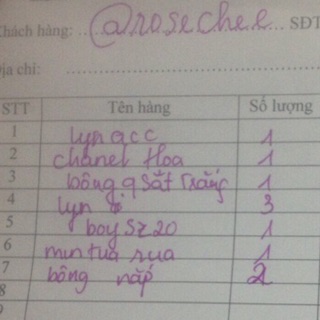 Khách hàng: @rosechee SĐT
Địa chỉ:
STT Tên hàng Số lượng
1 lyn acc 1
2 chanel Hoa 1
3 bông 9 sắt Trắng 1
4 lyn 3
5 boy sz 20 1
6 min tua rua 1
7 bông nắp 2
8
9